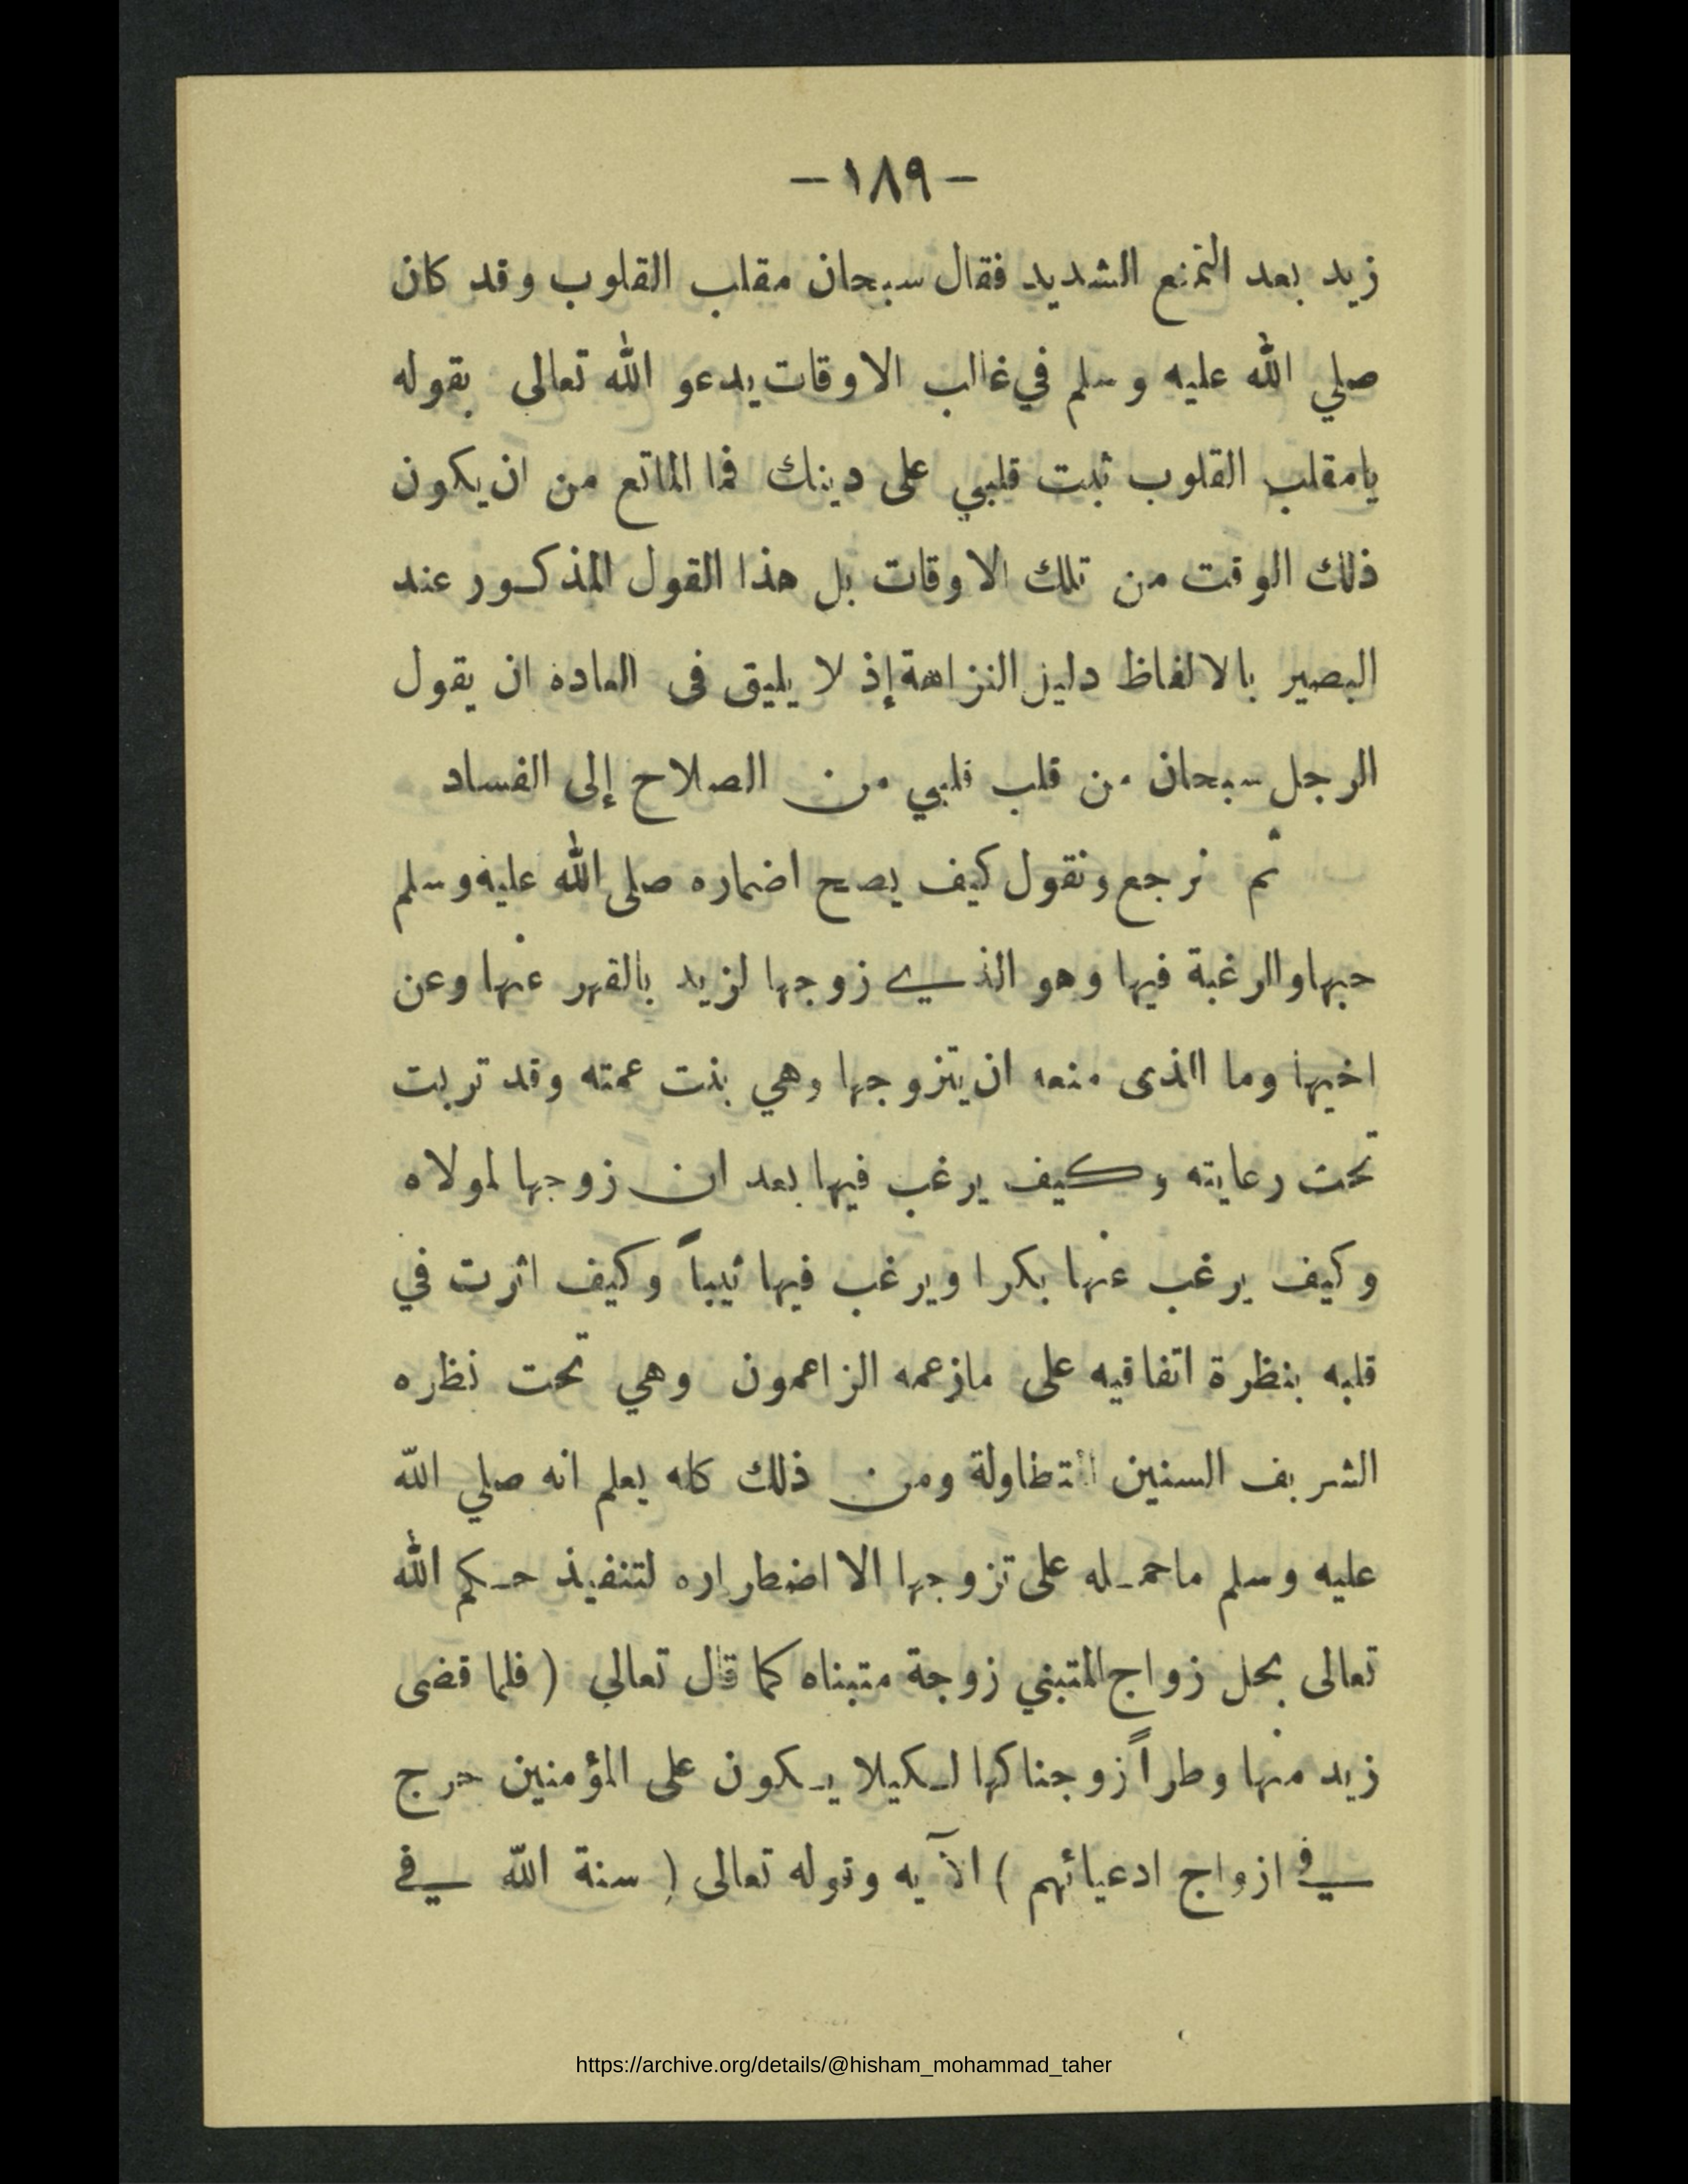 -١٨٩-
زيد بعد التمنع الشديد فقال سبحان مقلب القلوب وقد كان
صلي الله عليه وسلم في غالب الاوقات يدعو الله تعالى بقوله
يامقلب القلوب ثبت قلبي على دينك فما المانع من ان يكون
ذلك الوقت من تلك الاوقات بل هذا القول المذكور عند
البصير بالالفاظ دليل النزاهة إذ لا يليق فى العاده ان يقول
الرجل سبحان من قلب قلبي من الصلاح إلى الفساد
ثم نرجع ونقول كيف يصح اضماره صلى الله عليه وسلم
حبها والرغبة فيها وهو الذي زوجها لزيد بالقهر عنها وعن
اخيها وما الذى منعه ان يتزوجها وهي بنت عمته وقد تربت
تحت رعايته وكيف يرغب فيها بعد ان زوجها لمولاه
وكيف يرغب عنها بكرا ويرغب فيها ثيباً وكيف اثرت في
قلبه بنظرة اتفاقيه على مازعمه الزاعمون وهي تحت نظره
الشريف السنين المتطاولة ومن ذلك كله يعلم انه صلي الله
عليه وسلم ماحمله على تزوجها الا اضطراره لتنفيذ حكم الله
تعالى بحل زواج المتبني زوجة متبناه كما قال تعالي ( فلما قضى
زيد منها وطراً زوجناكها لكيلا يكون على المؤمنين حرج
في ازواج ادعيائهم ) الآيه وقوله تعالى ( سنة الله في
https://archive.org/details/@hisham_mohammad_taher